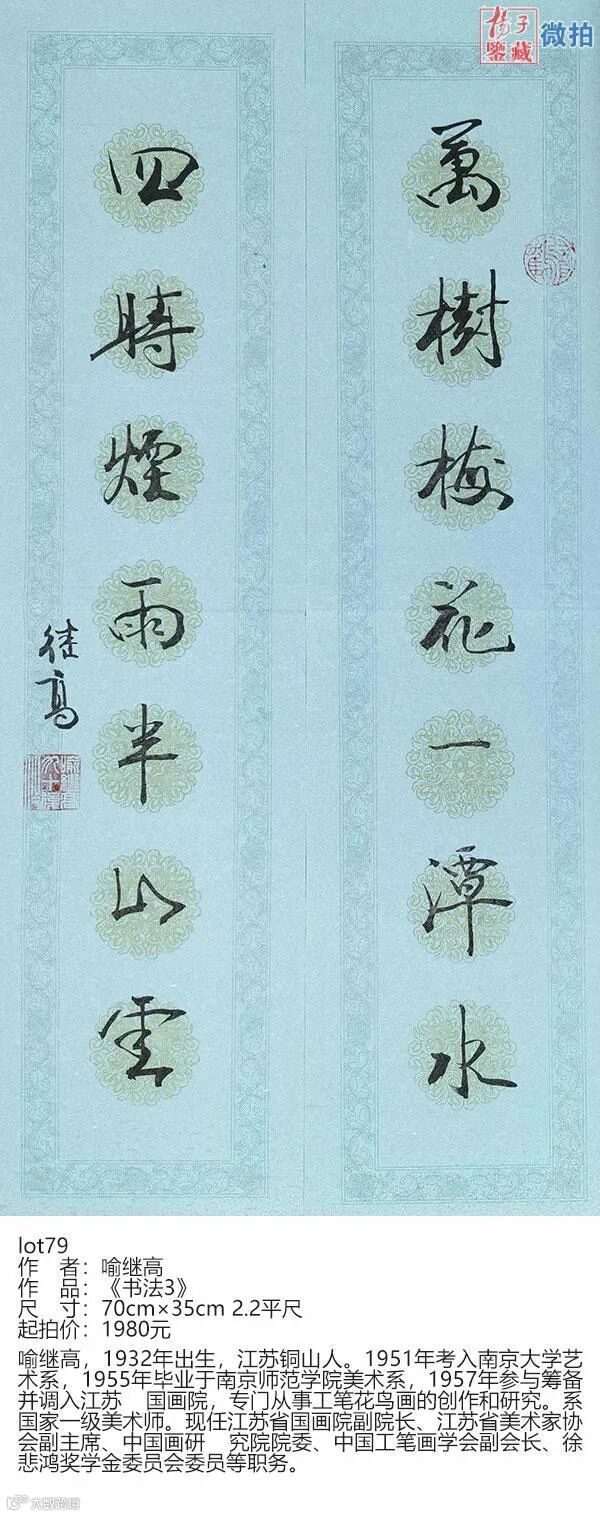 揚子
鑒藏
微拍
萬樹梅花一潭水
四時煙雨半山雲
继高
lot79
作 者：喻继高
作 品：《书法3》
尺 寸：70cm×35cm 2.2平尺
起拍价：1980元
喻继高，1932年出生，江苏铜山人。1951年考入南京大学艺
术系，1955年毕业于南京师范学院美术系，1957年参与筹备
并调入江苏 国画院，专门从事工笔花鸟画的创作和研究。系
国家一级美术师。现任江苏省国画院副院长、江苏省美术家协
会副主席、中国画研 究院院委、中国工笔画学会副会长、徐
悲鸿奖学金委员会委员等职务。
大数跨境